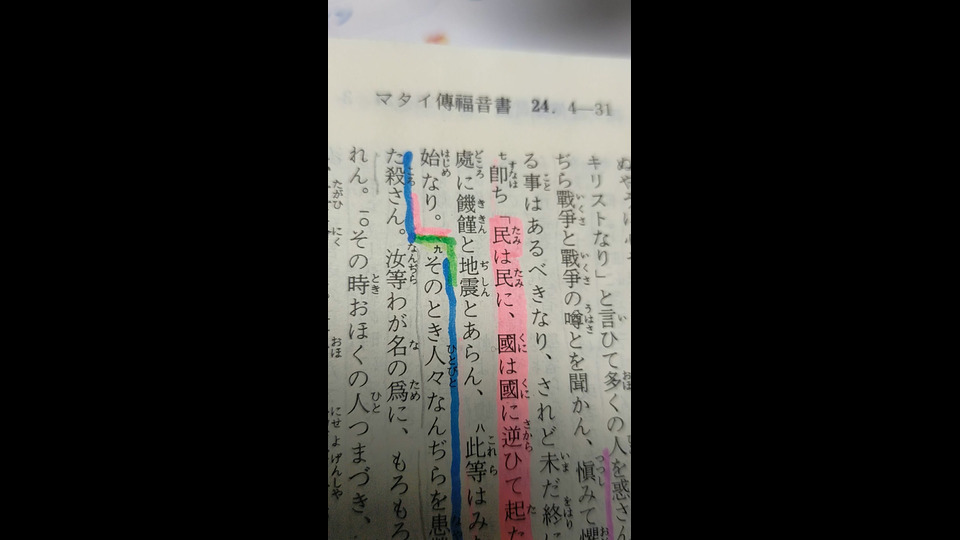 マタイ傳福音書 24. 4—31
キリストなり」と言ひて多くの人を惑さん
ぢら戰爭と戰爭の噂とを聞かん、愼みて懼
る事はあるべきなり、されど未だ終に
七 即ち「民は民に、國は國に逆ひて起た
處に饑饉と地震とあらん、 八 此等はみな
始なり。 九 そのとき人々なんぢらを患難
た殺さん。汝等わが名の爲に、もろもろ
れん。 一〇 その時おほくの人つまづき、